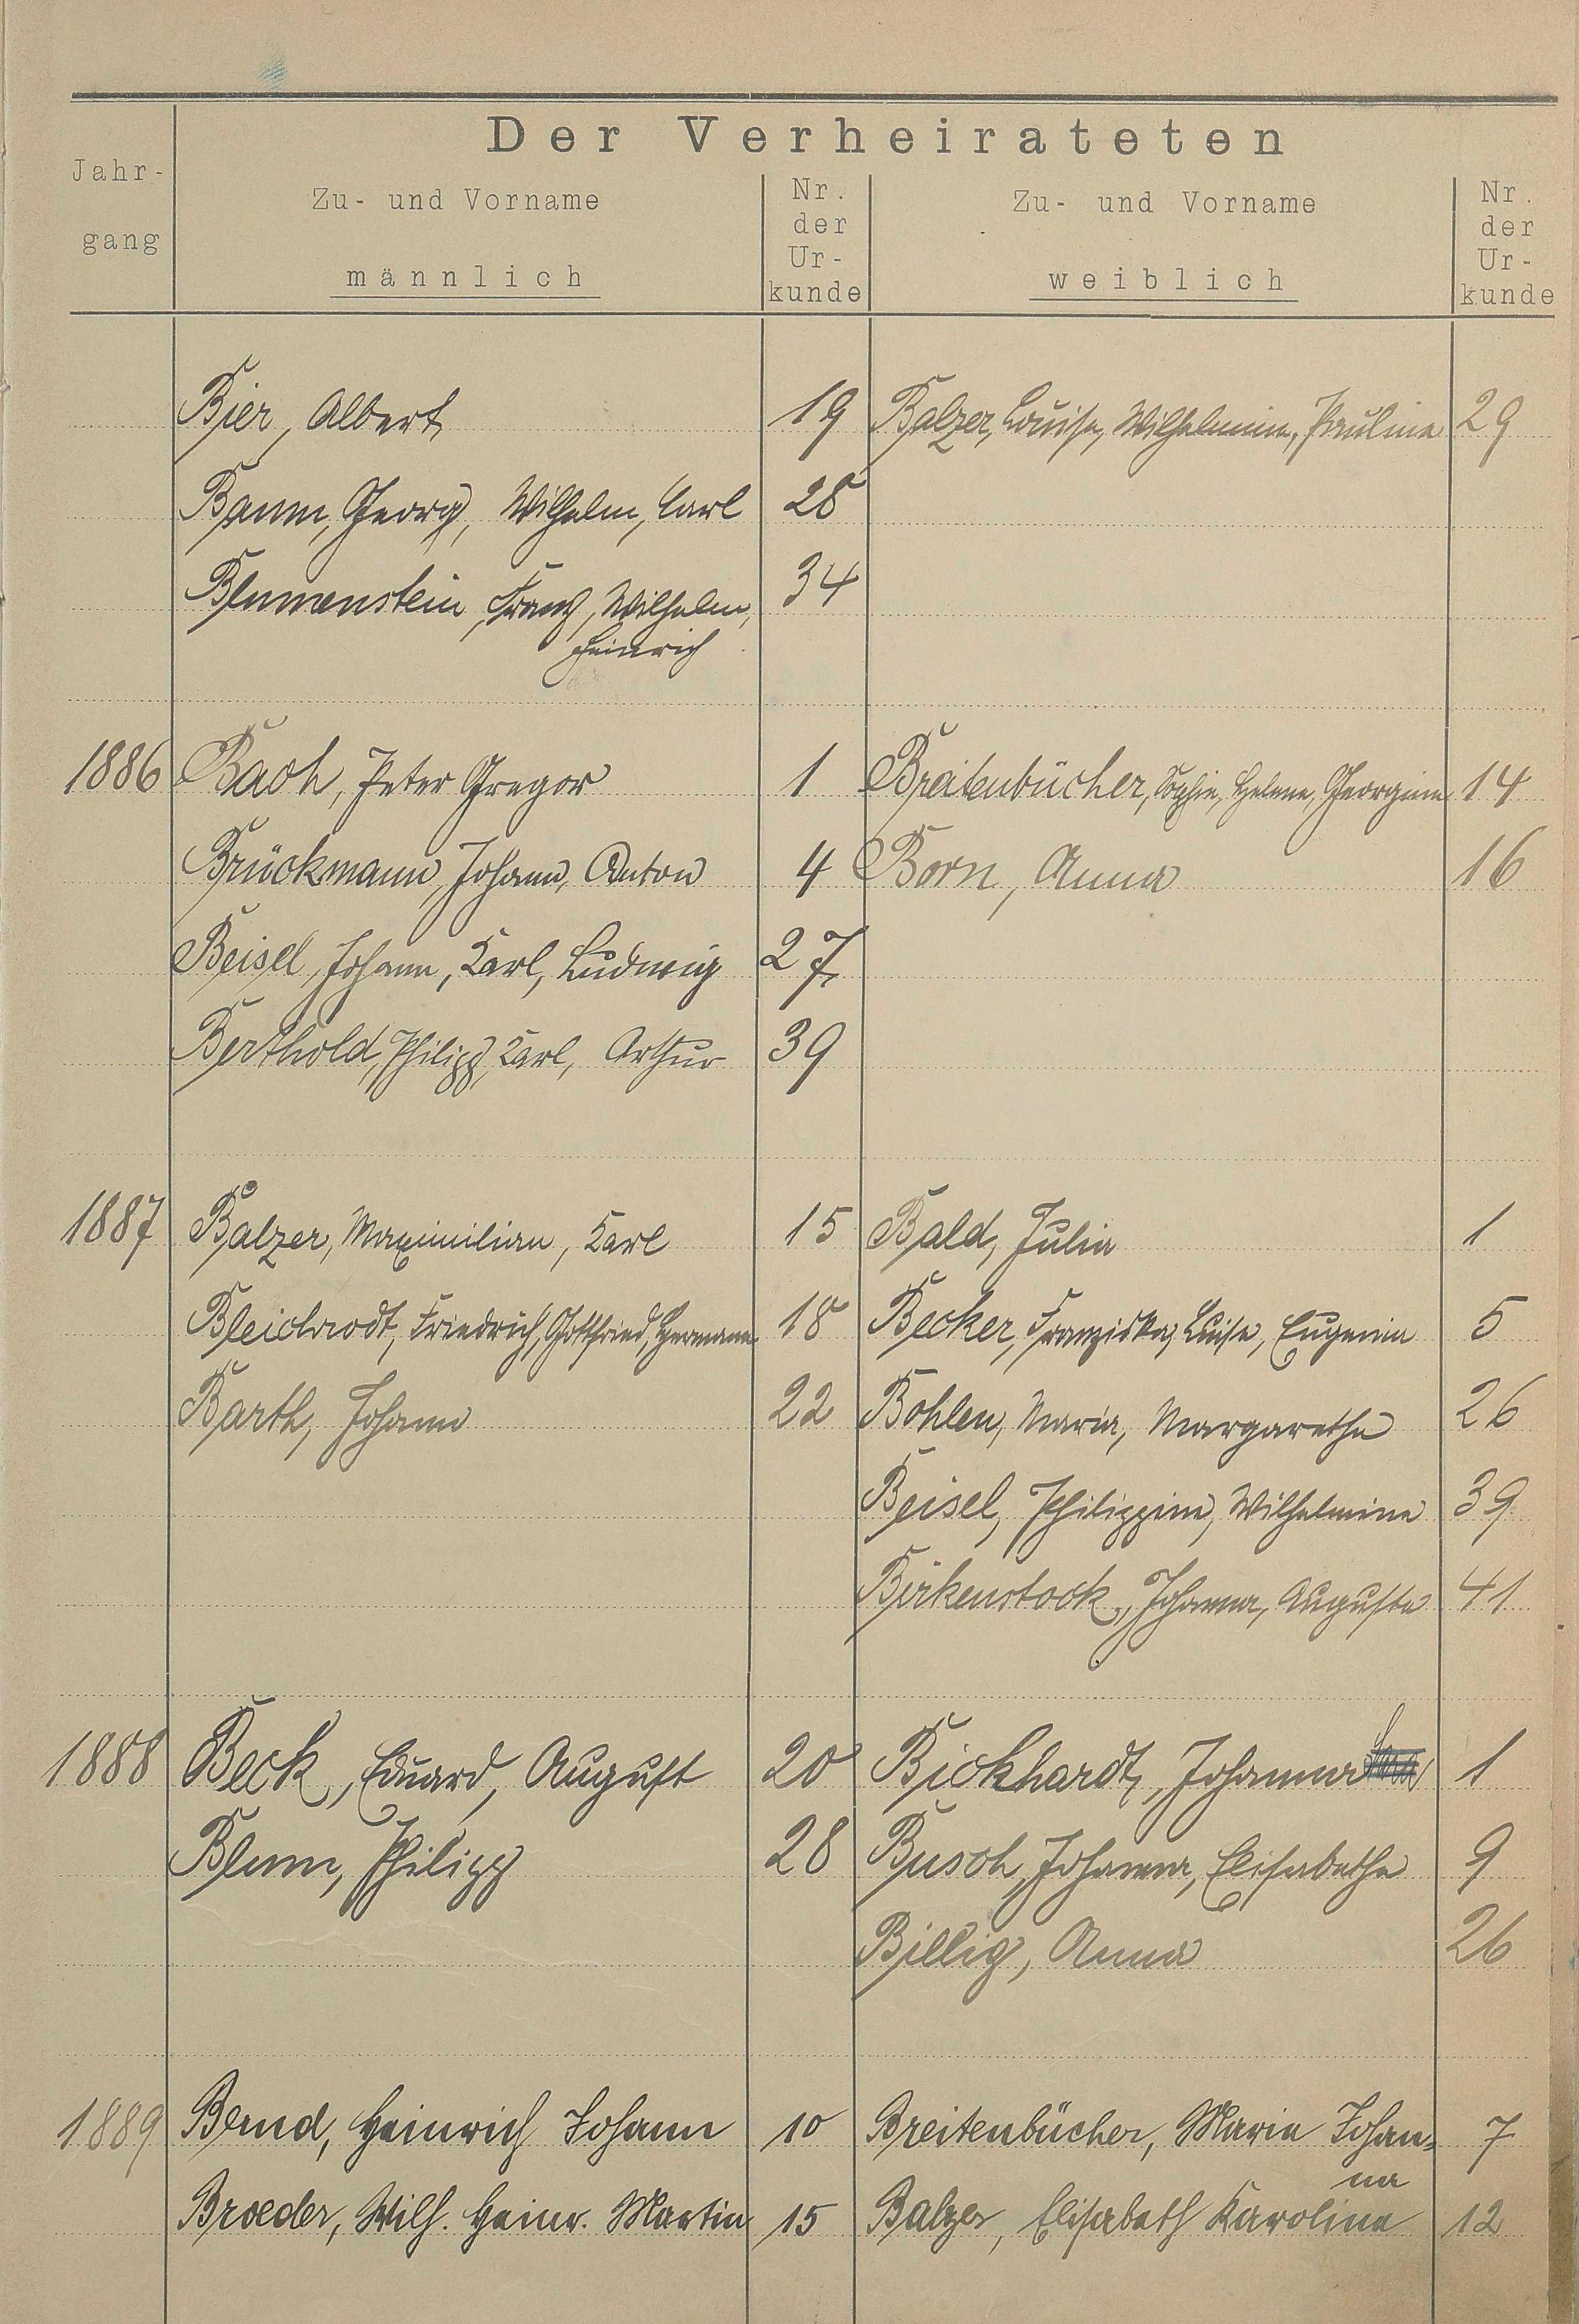 Der Verheirateten
Jahr-
gang
Zu- und Vorname
männlich
Nr.
der
Ur-
kunde
Zu- und Vorname
weiblich
Nr.
der
Ur-
kunde
Bier, Albert 19 Balzer, Louise, Wilhelmine, Pauline 29
Baum, Georg, Wilhelm, Carl 28
Blumenstein, Franz, Wilhelm, 34
Heinrich
1886 Bach, Peter Gregor 1 Breitenbücher, Sophie, Helene, Georgine 14
Brückmann, Johann, Anton 4 Born, Anna 16
Beisel, Johann, Karl, Ludwig 27
Berthold, Philipp, Karl, Arthur 39
1887 Balzer, Maximilian, Karl 15 Bald, Julia 1
Bleichrodt, Friedrich, Gottfried, Hermann 18 Becker, Franziska, Luise, Eugenie 5
Barth, Johann 22 Bohlen, Maria, Margarethe 26
Beisel, Philippine, Wilhelmine 39
Birkenstock, Johanna, Auguste 41
1888 Beck, Eduard, August 20 Bickhardt, Johanna 1
Blum, Philipp 28 Busch, Johanna, Elisabethe 9
Billig, Anna 26
1889 Bernd, Heinrich Johann 10 Breitenbücher, Maria Johan= 7
na
Broeder, Wilh. Heinr. Martin 15 Balzer, Elisabeth Karoline 12